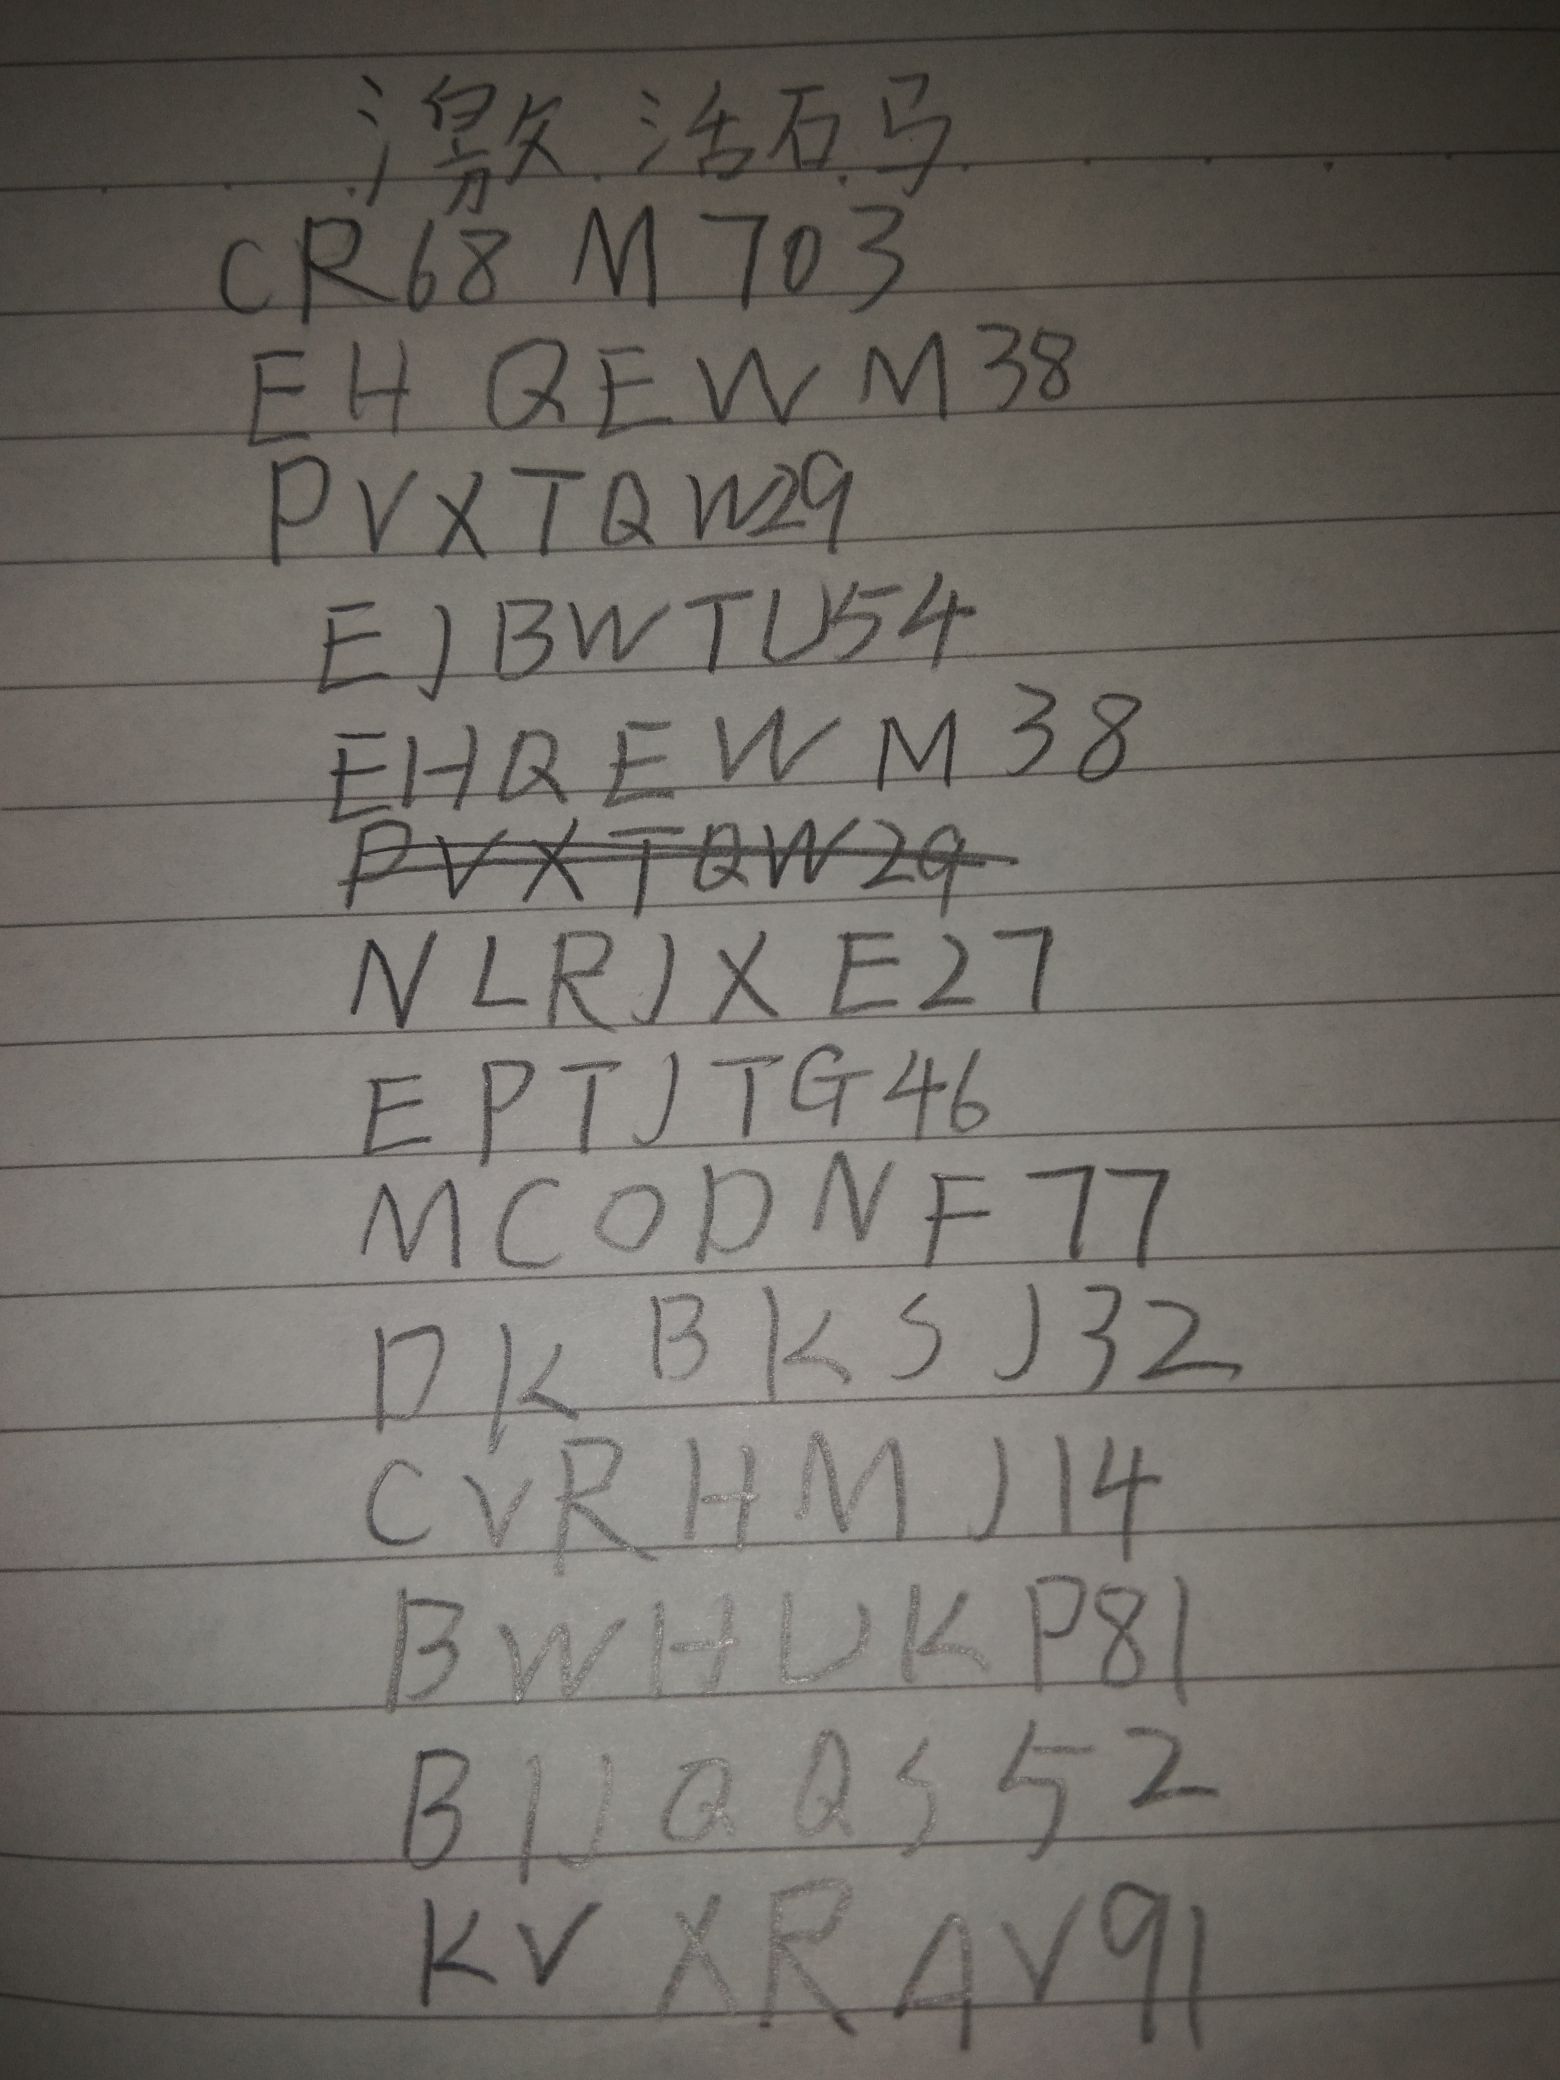 激活码
CR68M703
EHQEWM38
PVXTQW29
EJBWTU54
EHQEWM38
PVXTQW29
NLRJXE27
EPTJTG46
MCODNF77
DKBKSJ32
CVRHMJ14
BWHUKP81
BIJQQS52
KVXRAV91